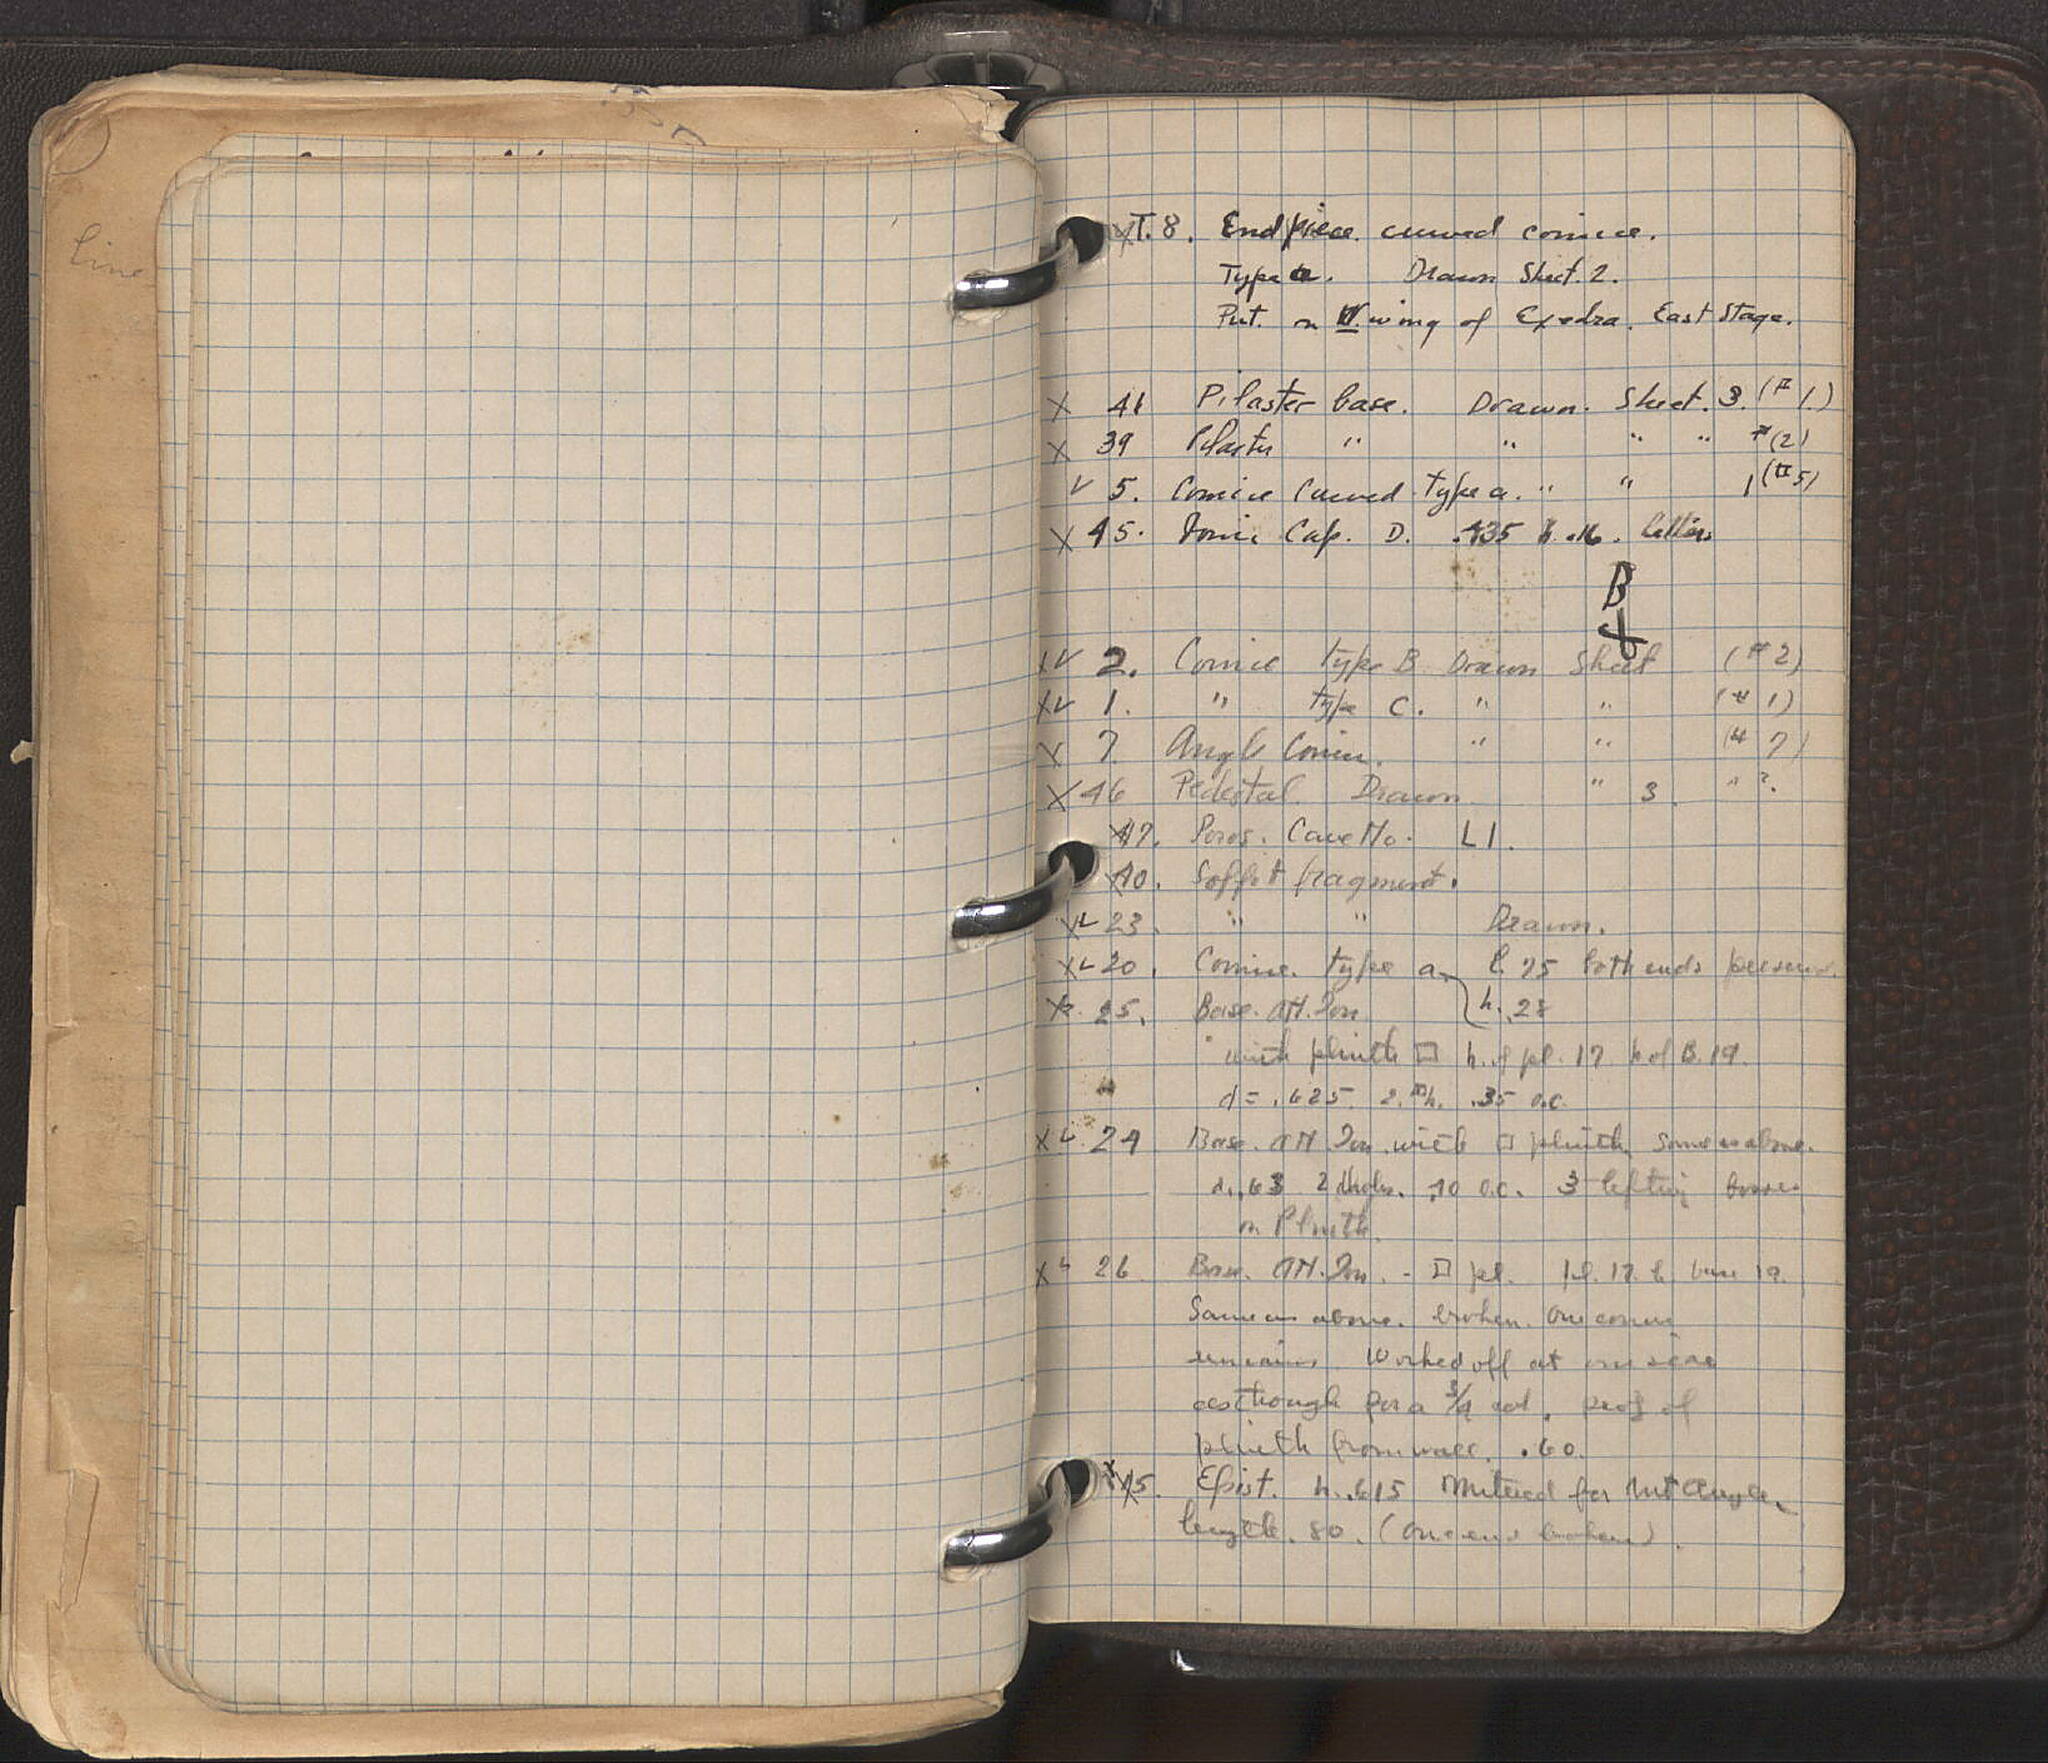 line
X T. 8. Endpiece curved cornice.
Type a. Drawn Sheet. 2.
Put. on W. wing of Exedra. East Stage.
X 41 Pilaster base. Drawn. Sheet. 3. (# 1.)
X 39 Pilaster " " " " #(2)
v 5. Cornice Curved type a. " " 1 (# 5)
X 45. Ionic Cap. D. .435 h. .16. letters
B
xv 2. Cornice type B Drawn Sheet (# 2)
xv 1. " type C. " " (# 1)
X 7. Angle Cornice. " " (# 7)
X 46 Pedestal. Drawn " 3. " ?.
X 47. Poros. Cavetto. L1.
X 40. Soffit fragment.
xv 23. " " Drawn.
xv 20. Cornice. type a. l. 75 both ends preserv.
X 25. Base. Att. Ion h. .28
with plinth □ h. of pl. 17. h of B. 19.
d = .625. 2. □h. .35 o.c.
xv 24 Base. Att. Ion. with □ plinth. Same as above.
d. .63 2 dholes. .40 o.c. 3 lifting bosses
on Plinth.
xv 26 Base. Att. Ion. - □ pl. pl. 17. h. base 19.
Same as above. broken. One corner
remains. Worked off at one side
as though for a 3/4 col. proj of
plinth from wall. .60.
X 45. Epist. h. .615 Mitered for Int Angle.
length. 80. (One end broken).